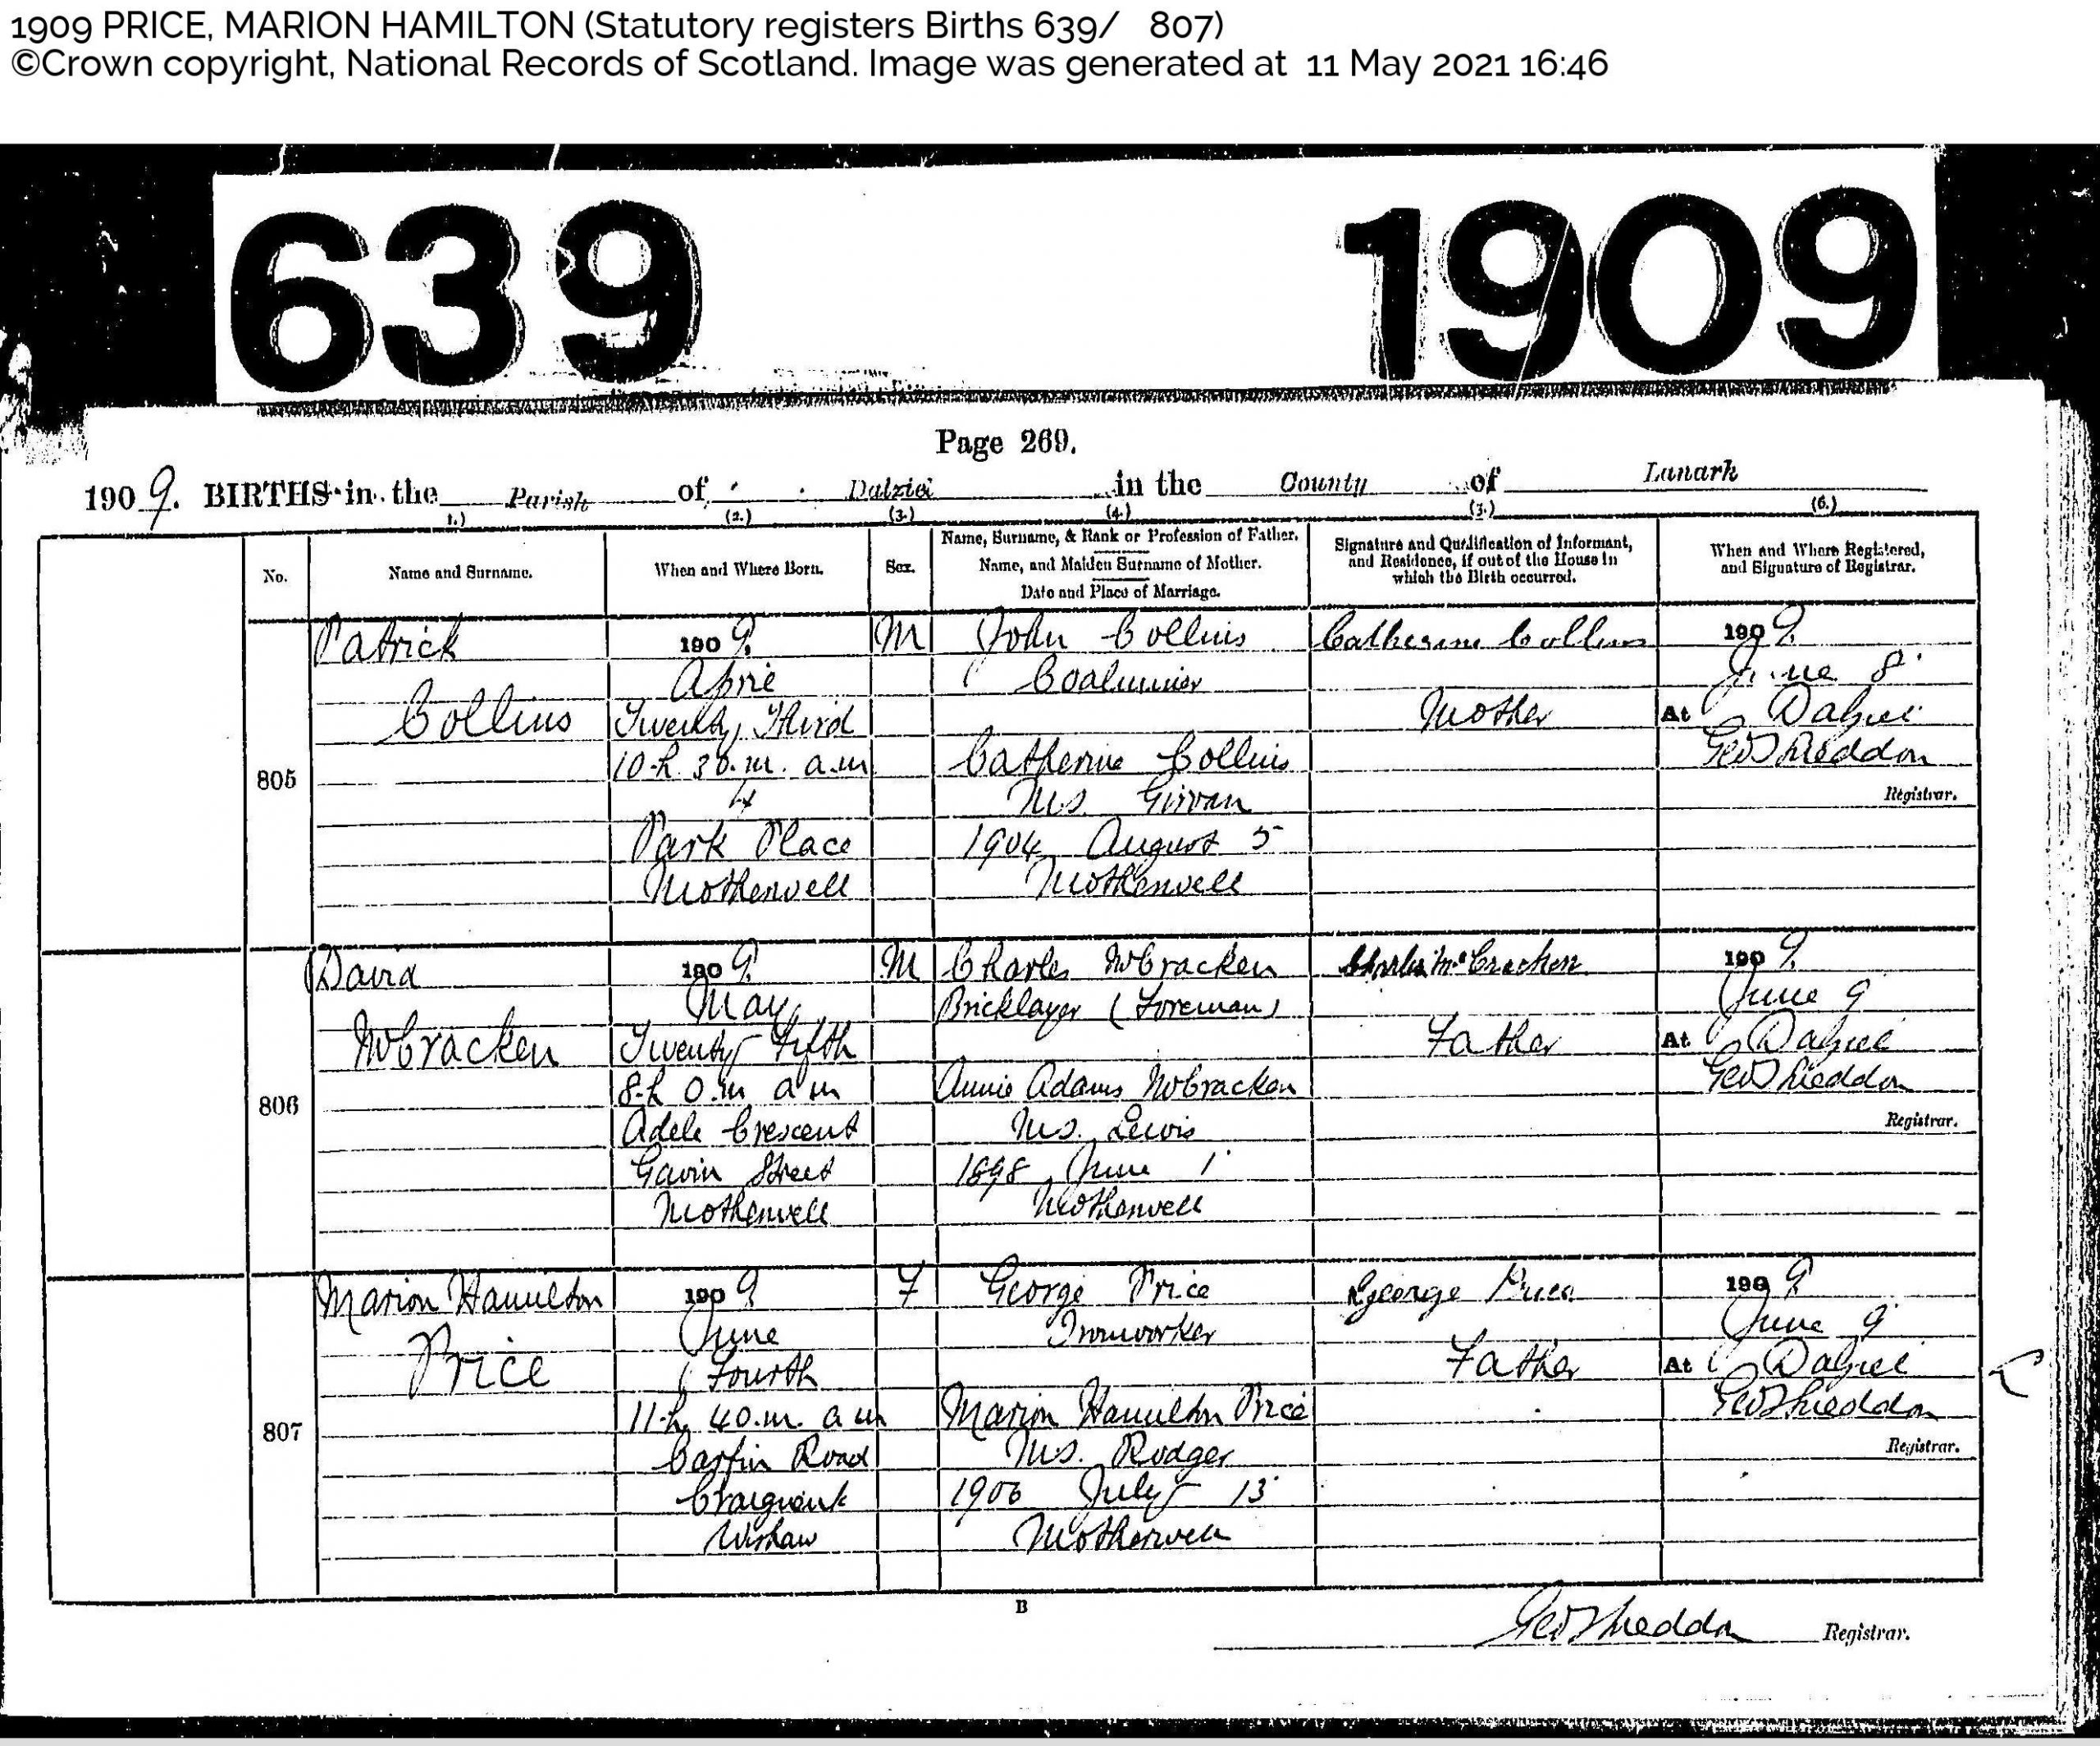 1909 PRICE, MARION HAMILTON (Statutory registers Births 639/ 807)
©Crown copyright, National Records of Scotland. Image was generated at 11 May 2021 16:46
639 1909
Page 269.
1909. BIRTHS in the Parish of Dalziel in the County of Lanark
1.) (2.) (3.) (4.) (5.) (6.)
No.
Name and Surname.
When and Where Born.
Sex.
Name, Surname, & Rank or Profession of Father.
Name, and Maiden Surname of Mother.
Date and Place of Marriage.
Signature and Qualification of Informant,
and Residence, if out of the House in
which the Birth occurred.
When and Where Registered,
and Signature of Registrar.
805
Patrick
Collins
1909
April
Twenty Third
10.h 30.m. a.m
4
Park Place
Motherwell
M
John Collins
Coalminer
Catherine Collins
M.S. Girvan
1904 August 5
Motherwell
Catherine Collins
Mother
1909
June 8
At Dalziel
Geo Sheddon
Registrar.
806
David
McCracken
1909
May
Twenty Fifth
8.h 0.m a m
Adele Crescent
Gavin Street
Motherwell
M
Charles McCracken
Bricklayer (Foreman)
Annie Adams McCracken
M.S. Lewis
1898 June 1
Motherwell
Charles McCracken
Father
1909
June 9
At Dalziel
Geo Sheddon
Registrar.
807
Marion Hamilton
Price
1909
June
Fourth
11.h. 40.m. a m
Carfin Road
Wishaw
F
George Price
Ironworker
Marion Hamilton Price
M.S. Rodger
1906 July 13
Motherwell
George Price
Father
1909
June 9
At Dalziel
Geo Sheddon
Registrar.
B
Geo Sheddon Registrar.